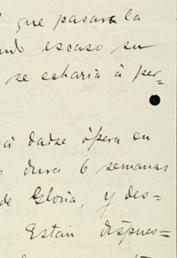 que pasara la
escaso su
se echaria á per=
á darse ópera en
dura 6 semanas
de Gloria, y des=
Están dispues=